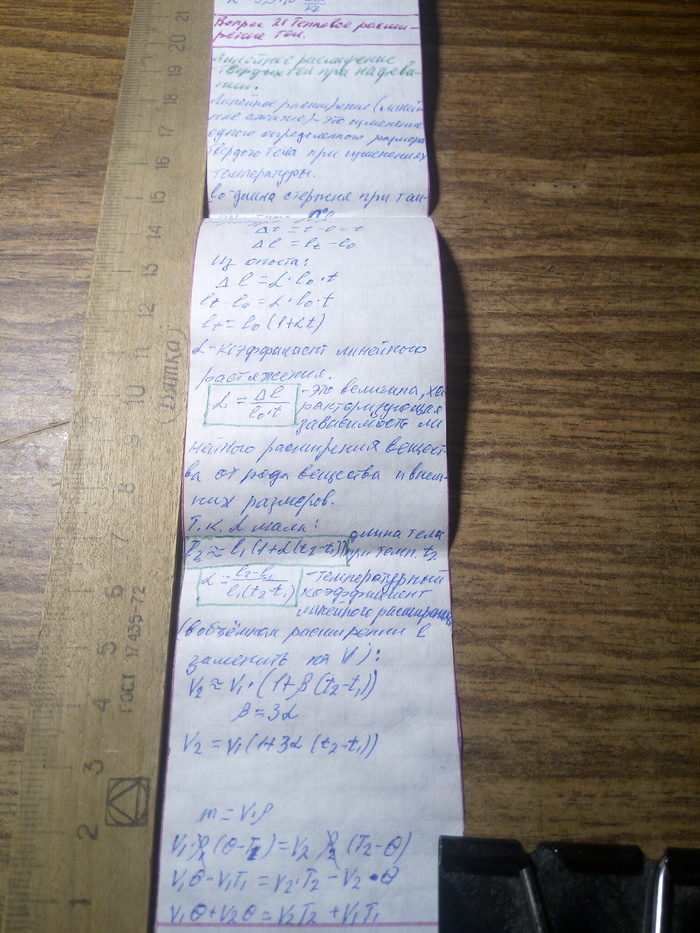 Вопрос 21 Тепловое расши-
рение тел.
Линейное расширение
твердых тел при нагрева-
нии.
Линейное расширение (линей
ное сжатие) - это изменение
одного определенного размера
твердого тела при изменениях
температуры.
l₀ - длина стержня при тем-
Δt = t - 0 = t
Δl = lt - l₀
Из опыта:
Δl = α · l₀ · t
lt - l₀ = α · l₀ · t
lt = l₀ (1+αt)
α - коэффициент линейного
растяжения.
α = Δl / l₀·t - это величина, ха
рактеризующая
зависимость ли
нейного расширения вещест
ва от рода вещества и внеш-
них размеров.
Т.к. α мала:
l₂ ≈ l₁(1+α(t₂-t₁)) длина тела
при темп. t₂
α = l₂-l₁ / l₁(t₂-t₁) - температурный
коэффициент
линейного расширения
(в объёмном расширении l
заменить на V):
V₂ ≈ V₁·(1+β(t₂-t₁))
β = 3α
V₂ = V₁(1+3α(t₂-t₁))
m = V·ρ
V₁·ρ₁(θ-T₁) = V₂ ρ₂ (T₂-θ)
V₁θ - V₁T₁ = V₂·T₂ - V₂·θ
V₁θ + V₂θ = V₂T₂ + V₁T₁
ГОСТ 17435-72
Вятка
1 2 3 4 5 6 7 8 9 10 11 12 13 14 15 16 17 18 19 20 21